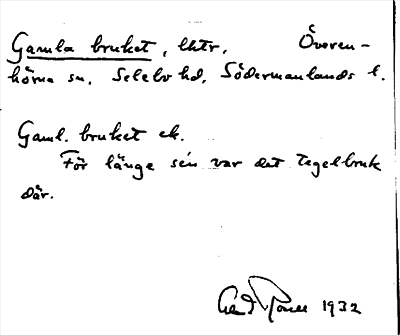 Gamla bruket, lktr, Överen-
hörna sn, Selebo hd, Södermanlands l.
Gaml. bruket ek.
För länge sen var det tegelbruk
där.
1932